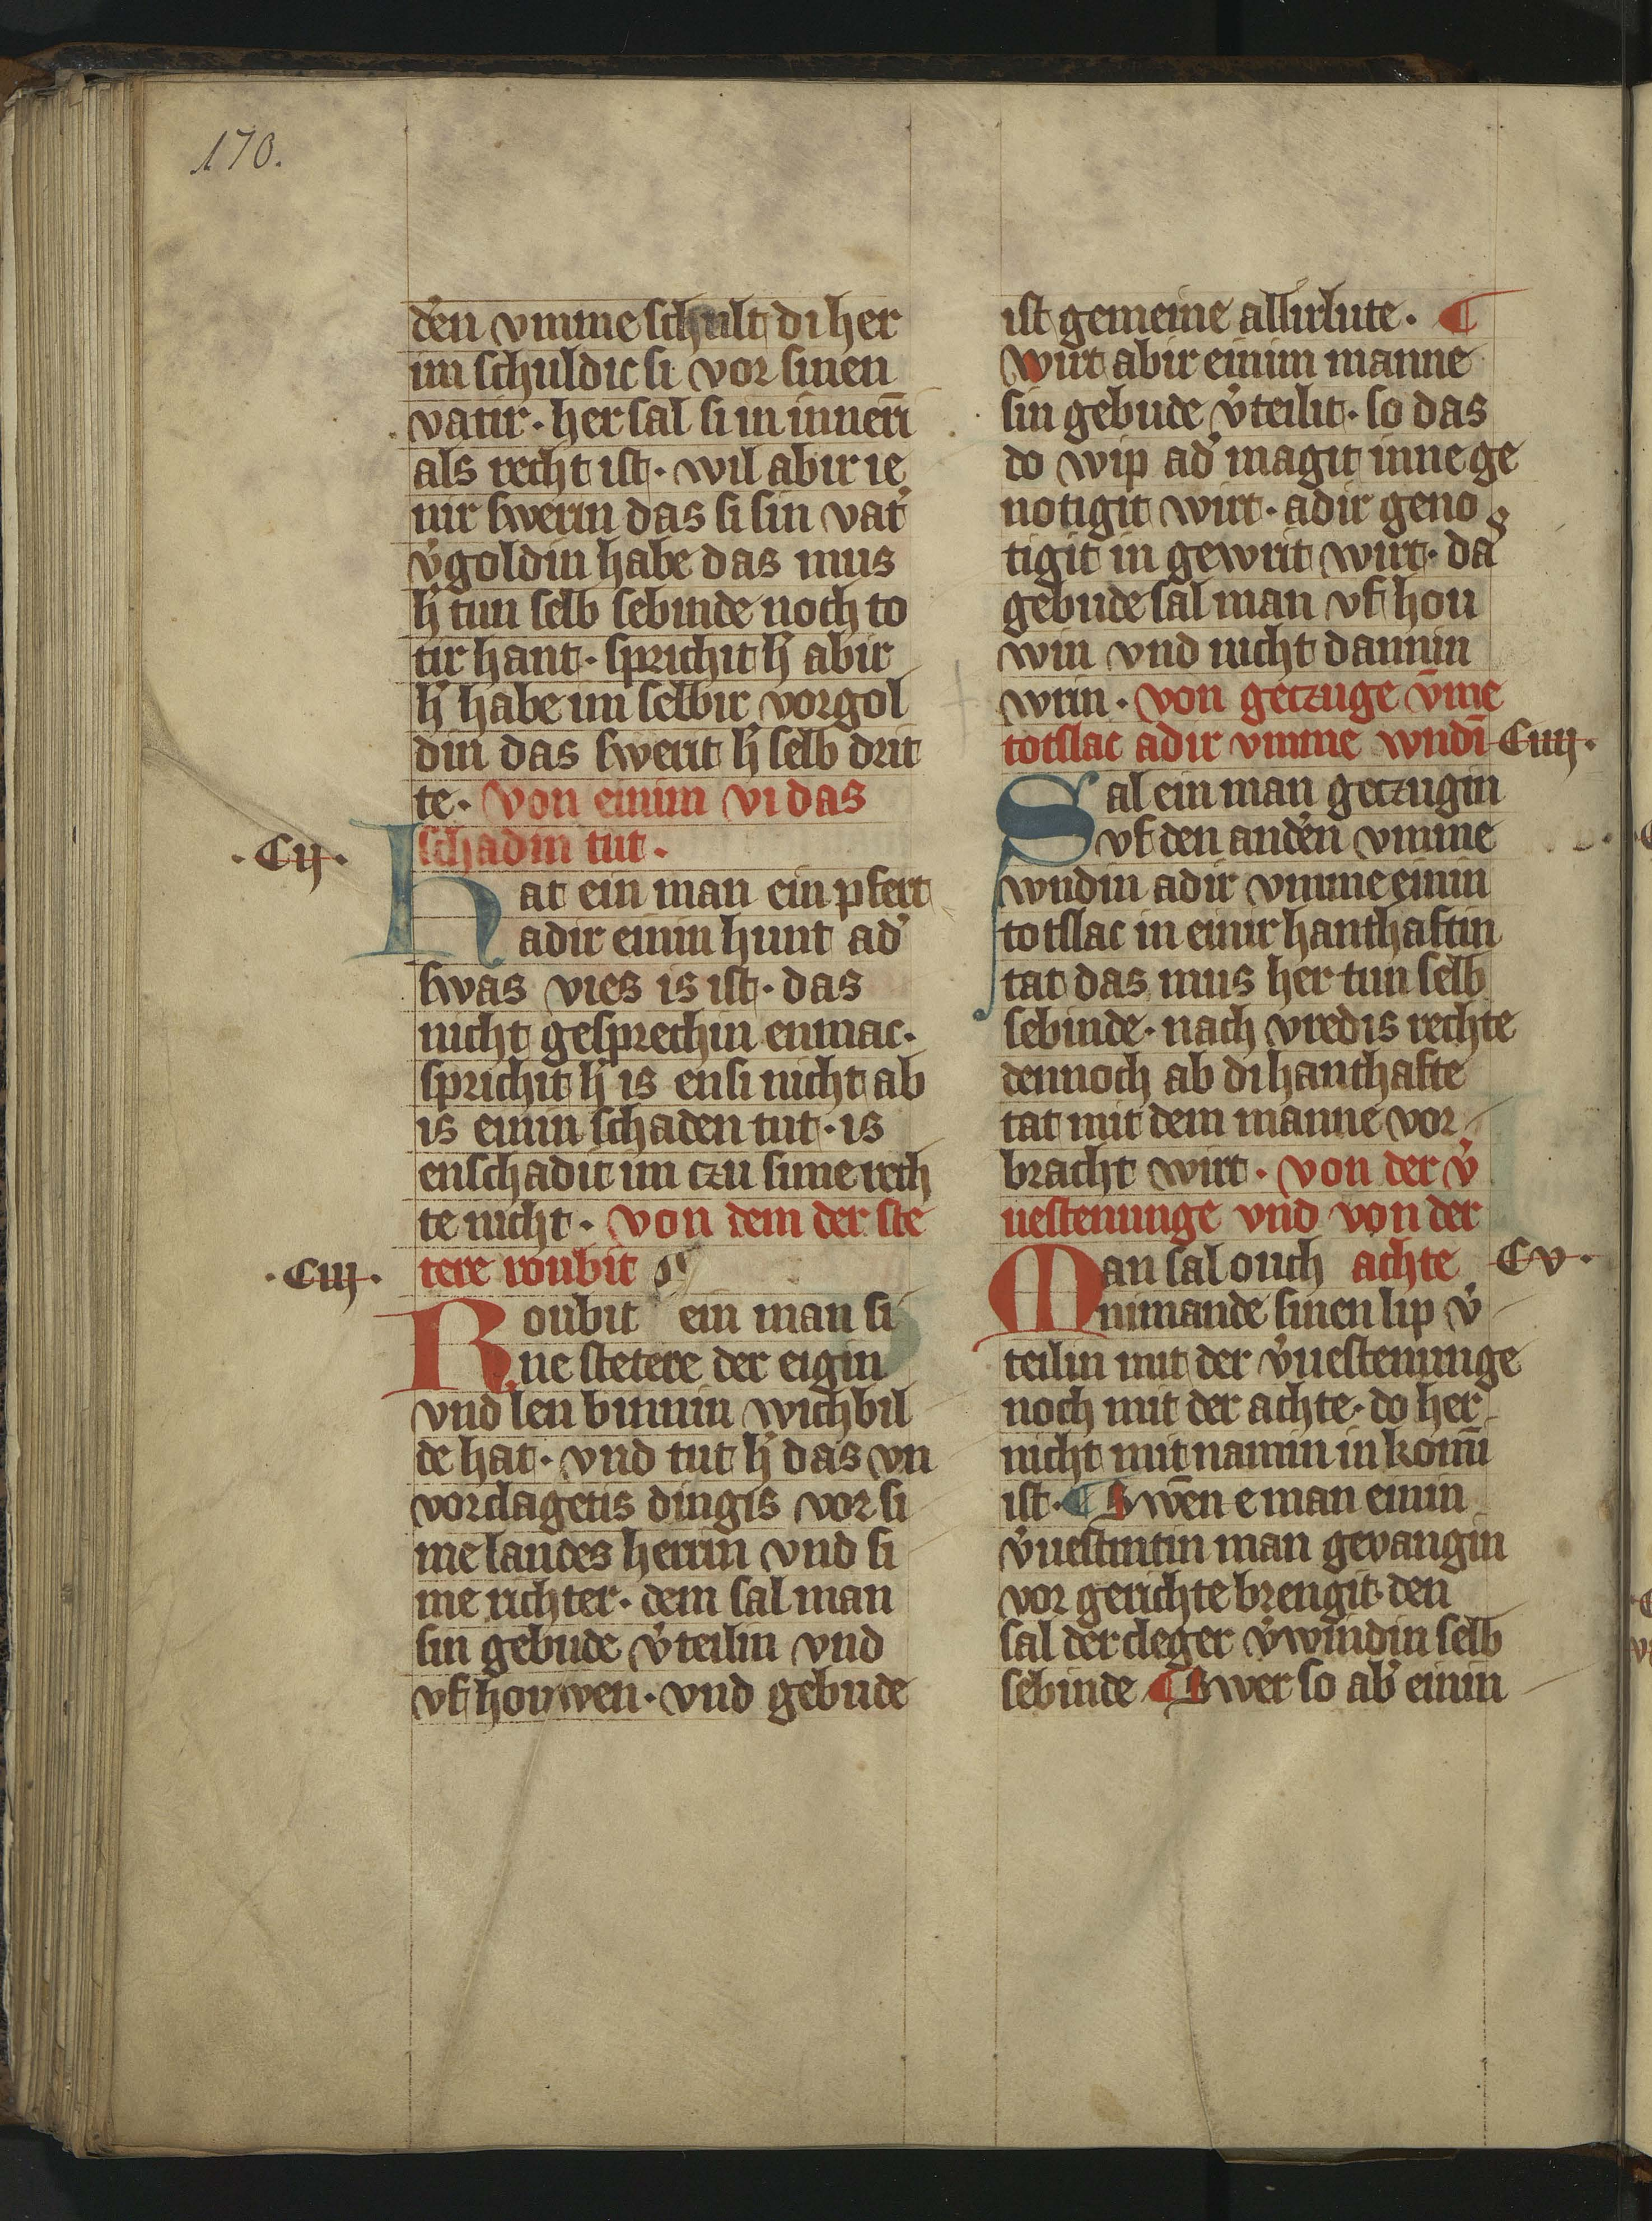 170.
den vmme schult di her
im schuldic si vor sinen
vatir · her sal si in innern̄
als recht ist · wil abir ie
nir swerin das si sin vat᾽
v᾽goldin habe das mus
h᾽ tun selb sebinde noch to
tir hant · sprichit h᾽ abir
h᾽ habe im selbir vorgol
din das swerit h᾽ selb drit
te · von einim vi das
· Cij ·
schadin tut ·
Hat ein man ein pfert
adir einin hunt ad᾽
swas vies is ist · das
nicht gesprechin enmac ·
sprichit h᾽ is ensi nicht ab
is einin schaden tut · is
enschadit im czu sime rech
te nicht · von dem der ste
· Ciij ·
tere roubit
Roubit ein man si
ne stetere der eigin
vnd len binnin wichbil
de hat · vnd tut h᾽ das vn
vorclagetis dingis vor si
me landes herrin vnd si
me richter · dem sal man
sin gebude v᾽teilin vnd
vf houwen · vnd gebude
ist gemeine allirlute · ¶
wirt abir einim manne
sin gebude v᾽teilit · so das
do wip ad᾽ magit inne ge
notigit wirt · adir geno
tigit in gewrit wirt · da᷒
gebude sal man vf hou
win vnd nicht dannin
wrin · von geczuge v̄me
totslac adir vmme wndī
Ciiij ·
Sal ein man geczugin
vf den and᾽en vmme
wndin adir vmme einin
totslac in einir hanthaftin
tat das mus her tun selb
sebinde · nach vredis rechte
dennoch ab di hanthafte
tat mit dem manne vor
bracht wirt · von der v᾽
uestenunge vnd von der
Man sal ouch achte
Cv ·
nimande sinen lip v᾽
teilin mit der v᾽uestenunge
noch mit der achte · do her
nicht mit namin in komī
ist · ¶ Swēn e man einin
v᾽uestintin man gevangin
vor gerichte brengit · den
sal der cleger v᾽windin selb
sebinde ¶ Swer so ab᾽ einin